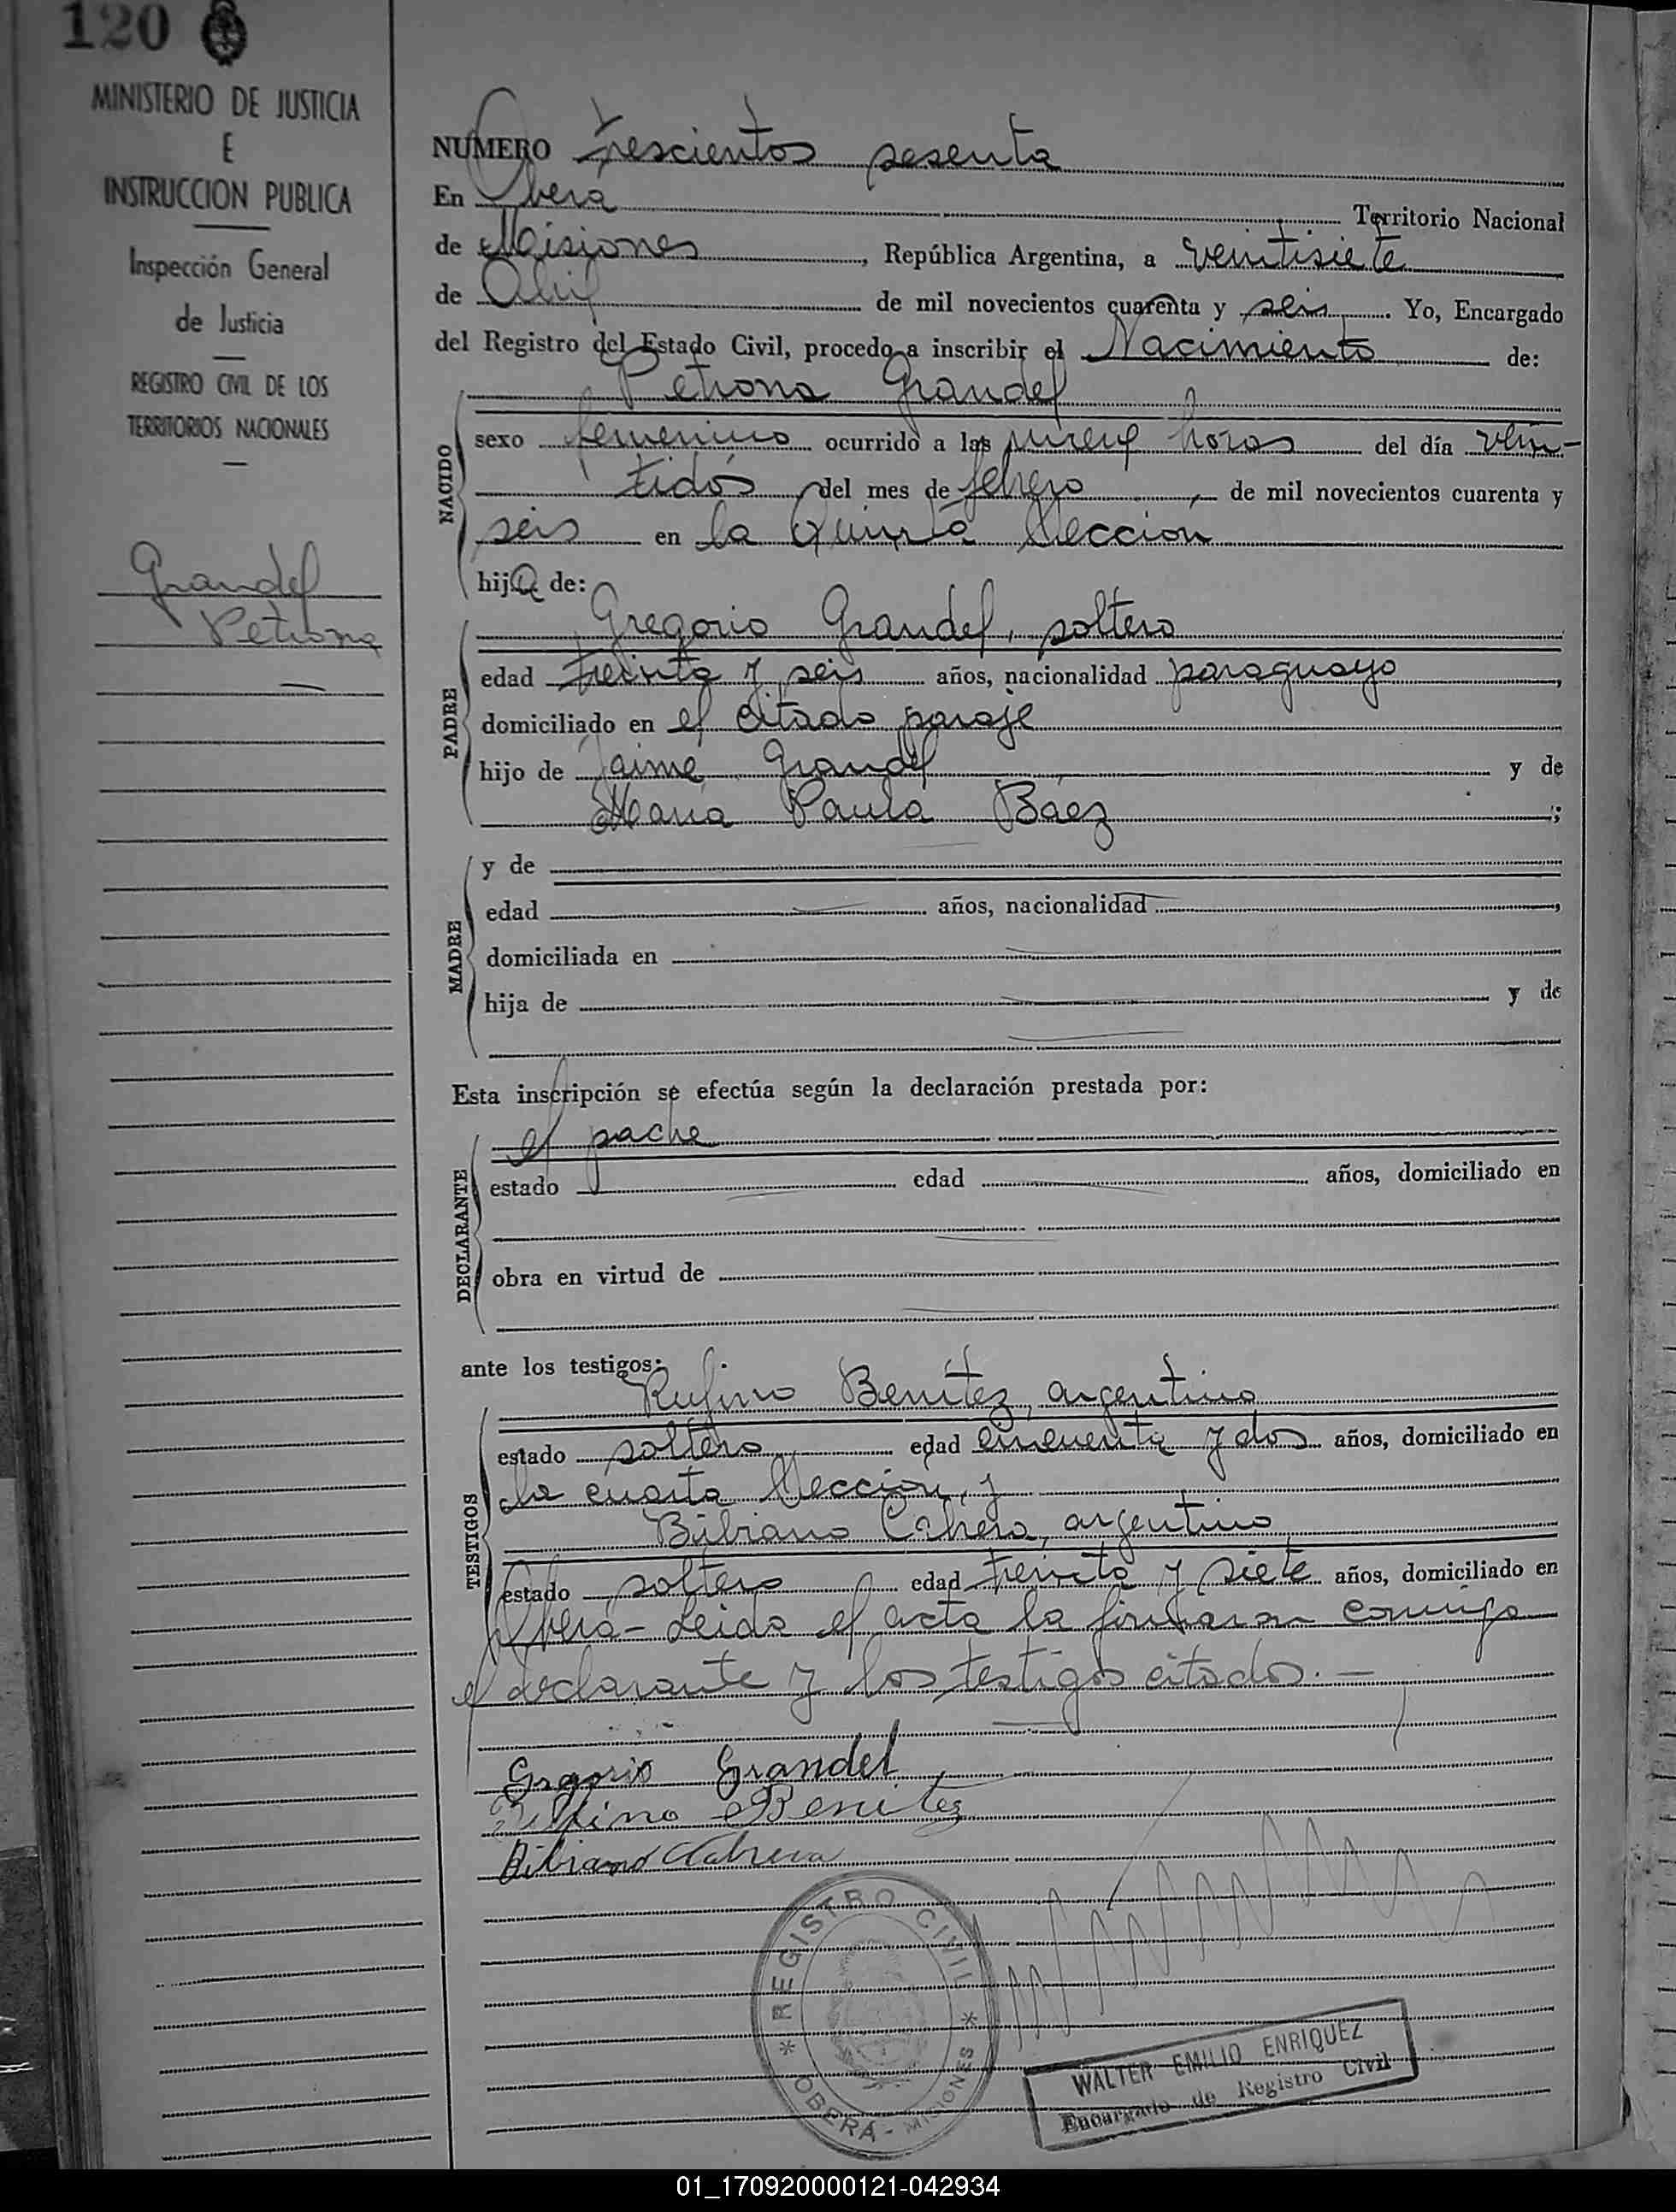 120
MINISTERIO DE JUSTICIA
E
INSTRUCCION PUBLICA
Inspección General
de Justicia
REGISTRO CIVIL DE LOS
TERRITORIOS NACIONALES
Grandel
Petrona
NUMERO Trescientos sesenta
En Oberá Territorio Nacional
de Misiones, República Argentina, a veintisiete
de Abril de mil novecientos cuarenta y seis. Yo, Encargado
del Registro del Estado Civil, procedo a inscribir el Nacimiento de:
Petrona Grandel
NACIDO
sexo femenino ocurrido a las nueve horas del día vein-
tidós del mes de febrero, de mil novecientos cuarenta y
seis en la Quinta Sección
hija de:
PADRE
Gregorio Grandel, soltero
edad treinta y seis años, nacionalidad paraguayo,
domiciliado en el citado paraje
hijo de Jaime Grandel y de
María Paula Báez;
MADRE
y de
edad años, nacionalidad,
domiciliada en
hija de y de
Esta inscripción se efectúa según la declaración prestada por:
DECLARANTE
el padre
estado edad años, domiciliado en
obra en virtud de
ante los testigos:
TESTIGOS
Rufino Benítez, argentino
estado soltero edad cincuenta y dos años, domiciliado en
la cuarta Sección, y
Bibiano Cabrera, argentino
estado soltero edad treinta y siete años, domiciliado en
Oberá - Leida el acta la firmaron conmigo
el declarante y los testigos citados. —
Gregorio Grandel
Rufino Benitez
Bibiano Cabrera
* REGISTRO CIVIL *
OBERA - MISIONES
WALTER EMILIO ENRIQUEZ
Encargado de Registro Civil
01_170920000121-042934